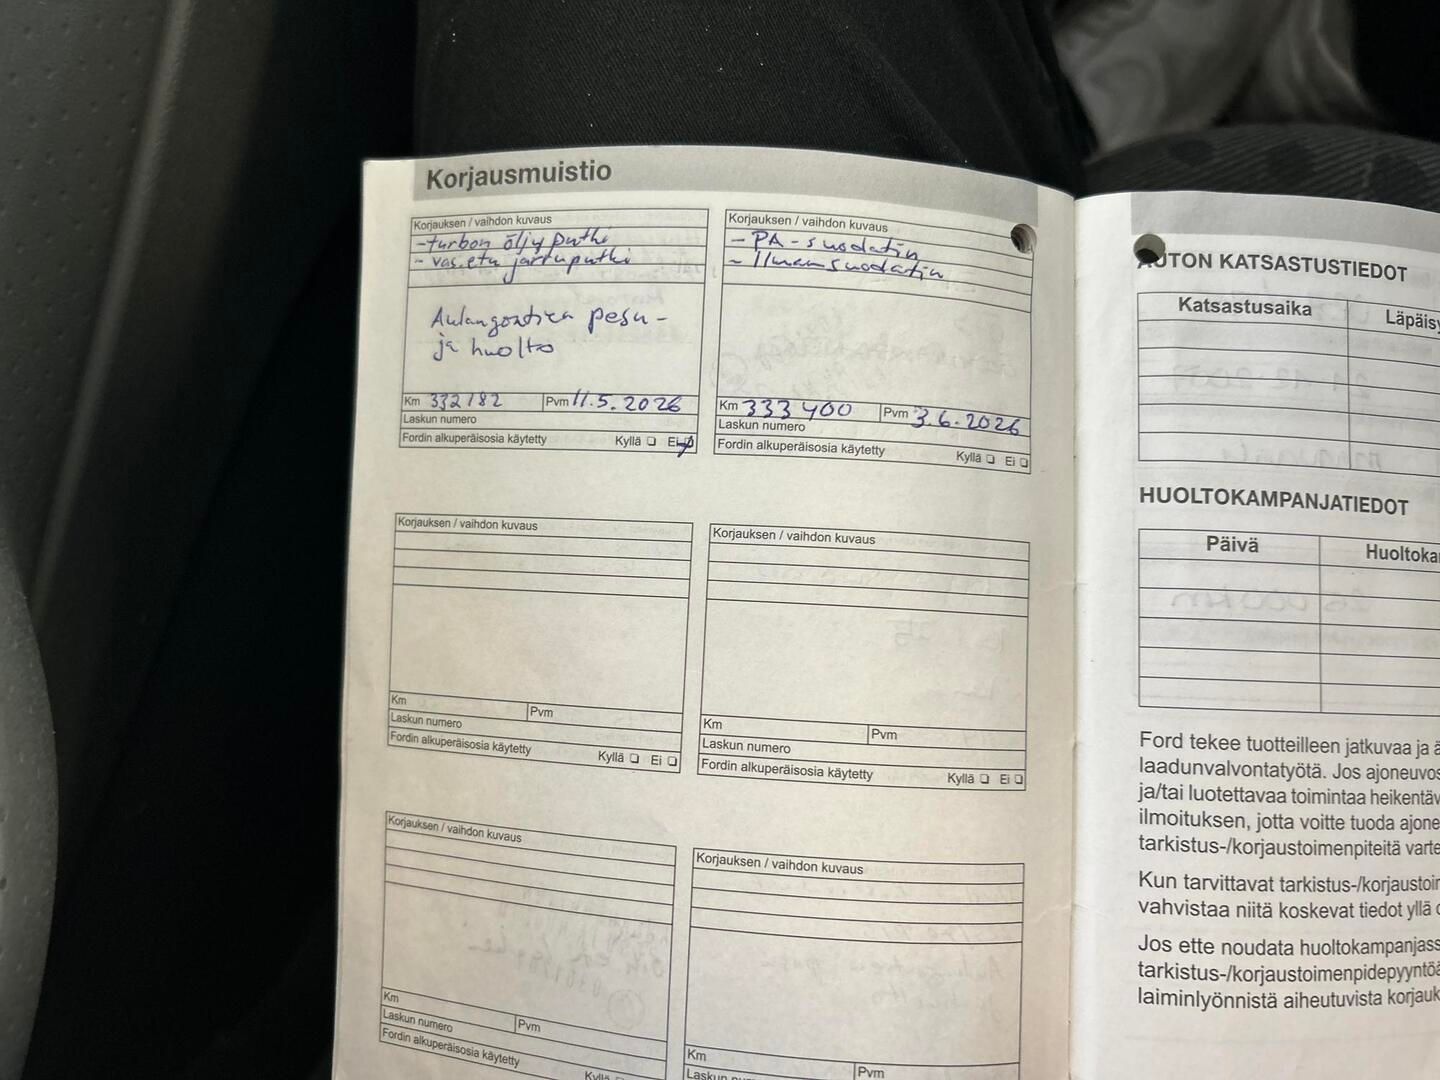 Korjausmuistio
Korjauksen / vaihdon kuvaus
- turbon öljyputki
- vas. etu jarruputki
Aulangontien pesu-
ja huolto
Km 332182 Pvm 11.5.2026
Laskun numero
Fordin alkuperäisosia käytetty Kyllä Ei
Korjauksen / vaihdon kuvaus
- PA-suodatin
- Ilmansuodatin
Km 333400 Pvm 3.6.2026
Laskun numero
Fordin alkuperäisosia käytetty Kyllä Ei
Korjauksen / vaihdon kuvaus
Km Pvm
Laskun numero
Fordin alkuperäisosia käytetty Kyllä Ei
Korjauksen / vaihdon kuvaus
Km Pvm
Laskun numero
Fordin alkuperäisosia käytetty Kyllä Ei
Korjauksen / vaihdon kuvaus
Km Pvm
Laskun numero
Fordin alkuperäisosia käytetty Kyllä
Korjauksen / vaihdon kuvaus
Km Pvm
Laskun numero
AUTON KATSASTUSTIEDOT
Katsastusaika Läpäisy
HUOLTOKAMPANJATIEDOT
Päivä Huoltoka
Ford tekee tuotteilleen jatkuvaa ja
laadunvalvontatyötä. Jos ajoneuvos
ja/tai luotettavaa toimintaa heikentäv
ilmoituksen, jotta voitte tuoda ajone
tarkistus-/korjaustoimenpiteitä varte
Kun tarvittavat tarkistus-/korjaustoir
vahvistaa niitä koskevat tiedot yllä
Jos ette noudata huoltokampanjass
tarkistus-/korjaustoimenpidepyyntöä
laiminlyönnistä aiheutuvista korjauk